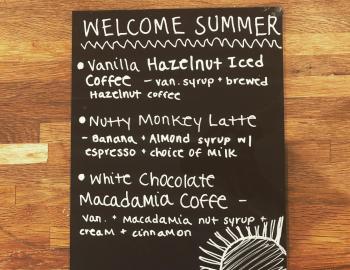 WELCOME SUMMER
• Vanilla Hazelnut Iced
Coffee - van. syrup + brewed
Hazelnut coffee
• Nutty Monkey Latte
- Banana + Almond syrup w/
espresso + choice of milk
• White Chocolate
Macadamia Coffe -
Van. + Macadamia nut syrup +
cream + cinnamon